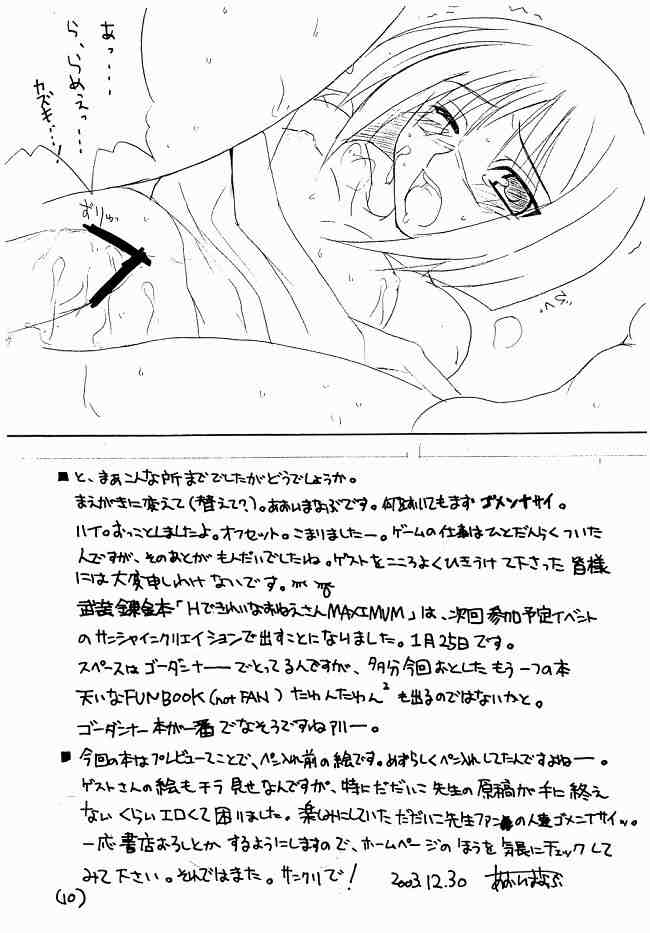 ■と、まぁこんな所まででしたがどうでしょうか。
まえがきに変えて(替えて?)。あおいまなぶです。何はおいてもまず ゴメンナサイ。
ハイ。おっことしましたよ。オフセット。こまりましたー。ゲームの仕事はひとだんらくついた
んですが、そのあとがもんだいでしたね。ゲストをこころよくひきうけて下さった皆様
には大変申しわけないです。
武装錬金本「HできれいなおねえさんMAXIMUM」は、次回参加予定イベント
のサンシャインクリエイションで出すことになりました。1月25日です。
スペースはゴーダンナーーでとってるんですが、多分今回おとしたもう一つの本
天いなFUNBOOK(not FAN) たわんたわん2も出るのではないかと。
ゴーダンナー本が一番でなそうですね
■今回の本はプレビューてことで、ペン入れ前の絵です。めずらしくペン入れしてたんですよねー。
ゲストさんの絵もチラ見せなんですが、特にだだいこ先生の原稿が手に終え
ないくらいエロくて困りました。楽しみにしていただだいこ先生ファンの人達ゴメンナサイッ。
一応書店おろしとかするようにしますので、ホームページのほうを気長にチェックして
みて下さい。それではまた。サンクリで! 2003.12.30 あおいまなぶ
(10)